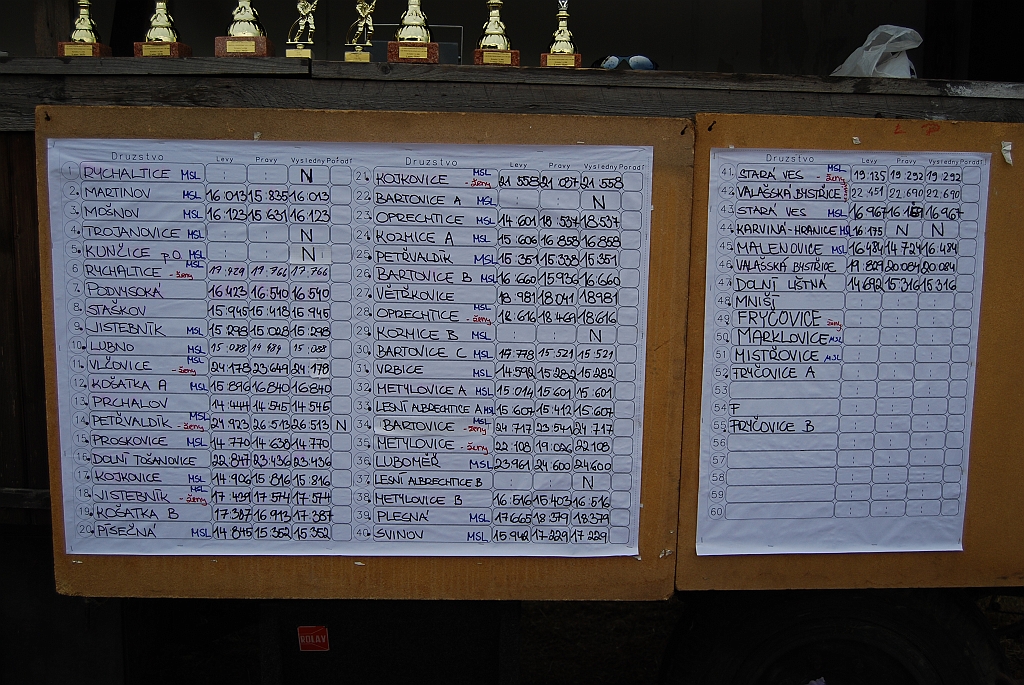 Druzstvo Levy Pravy Vysledny Poradi
1 RYCHALTICE MSL N
2. MARTINOV MSL 16:013 15:835 16:013
3. MOŠNOV MSL 16:123 15:631 16:123
4. TROJANOVICE MSL N
5. KUNČICE p.O. MSL N
6 RYCHALTICE - ženy MSL 17:766
7. PODVYSOKÁ 16:423 16:540 16:540
8. STAŠKOV 15:945 15:418 15:945
9. JISTEBNÍK MSL 15:298 15:028 15:298
10. LUBNO MSL 15:088
11. VLČOVICE - ženy MSL 24:178 23:649 24:178
12. KOŠATKA A MSL 15:896 16:840 16:840
13. PRCHALOV 14:444 14:545 14:545
14. PETŘVALDÍK - ženy MSL 24:923 26:513 26:513 N
15. PROSKOVICE MSL 14:770 14:638 14:770
16. DOLNÍ TOŠANOVICE 22:847 23:436 23:436
17. KOJKOVICE MSL 14:906 15:816 15:816
18. JISTEBNÍK - ženy MSL 17:429 17:574 17:574
19. KOŠATKA B 17:387 16:913 17:387
20. PÍSEČNÁ MSL 14:845 15:352 15:352
Druzstvo Levy Pravy Vysledny Poradi
21. KOJKOVICE - ženy MSL 21:558 21:037 21:558
22. BARTOVICE A MSL N
23. OPRECHTICE MSL 14:601 18:537 18:537
24. KOZMICE A MSL 15:606 16:858 16:858
25. PETŘVALDÍK MSL 15:351 15:338 15:351
26. BARTOVICE B MSL 16:660 15:936 16:660
27. VĚTŘKOVICE 18:981 18:041 18:981
28. OPRECHTICE - ženy MSL 18:616 18:469 18:616
29. KOZMICE B MSL N
30. BARTOVICE C MSL 15:521 15:521
31. VRBICE MSL 14:592 15:282 15:282
32. METYLOVICE A MSL 15:014 15:601 15:601
33. LESNÍ ALBRECHTICE A MSL 15:607 15:412 15:607
34. BARTOVICE - ženy MSL 24:717 23:541 24:717
35. METYLOVICE - ženy MSL 22:108 19:026 22:108
36. LUBOMĚŘ MSL 23:961 24:600 24:600
37. LESNÍ ALBRECHTICE B N
38. METYLOVICE B MSL 16:516 15:403 16:516
39. PLESNÁ MSL 17:665 18:379 18:379
40. SVINOV MSL 15:942 17:229 17:229
Druzstvo Levy Pravy Vysledny Poradi
41. STARÁ VES - ženy MSL 19:135 19:292 19:292
42. VALAŠSKÁ BYSTŘICE ženy 22:451 22:690 22:690
43. STARÁ VES MSL 16:967 16:967
44. KARVINÁ-HRANICE MSL 16:175 N N
45. MALENOVICE MSL 16:484 14:724 16:484
46. VALAŠSKÁ BYSTŘICE 19:829 20:084 20:084
47. DOLNÍ LIŠTNÁ 14:692 15:316 15:316
48. MNIŠÍ
49. FRYČOVICE ženy
50. MARKLOVICE MSL
51. MISTŘOVICE MSL
52. FRYČOVICE A
53.
54. F
55. FRYČOVICE B
56
57
58
59
60
ROLAY